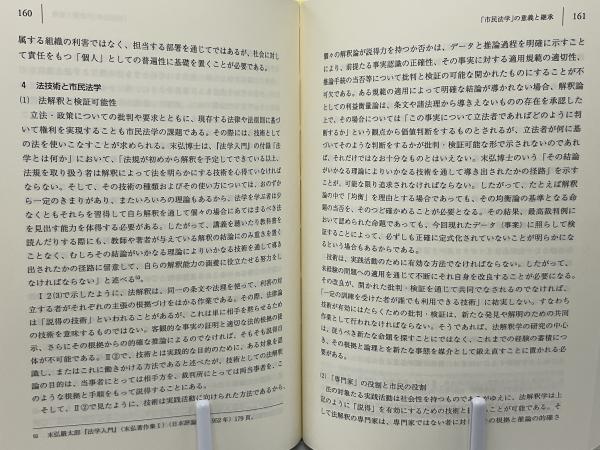 160
属する組織の利害ではなく、担当する部署を通じてではあるが、社会に対し
て責任をもつ「個人」としての普遍性に基礎を置くことが必要である。
4 法技術と市民法学
(1) 法解釈と検証可能性
立法・政策についての批判や要求とともに、現存する法律や法原則に基づ
いて権利を実現することも市民法学の課題である。その際には、技術として
の法を使いこなすことが求められる。末弘博士は、『法学入門』の付録「法
学とは何か」において、「法規が初めから解釈を予定してできている以上、
法規を取り扱う者は解釈によって法を明らかにする技術を心得ていなければ
ならない。そして、その技術の種類およびその使い方については、おのずか
ら一定のきまりがあり、またいろいろの理論もあるから、法学を学ぶ者は少
なくともそれらを習得して自ら解釈を通して個々の場合にあてはまるべき法
を見出す能力を体得する必要がある。したがって、講義を聴いたり教科書を
読んだりする際にも、教師や著者が与えている解釈の結論にのみ重きを置く
ことなく、むしろその結論がいかなる理論によりいかなる技術を通して導き
出されたかの径路に留意して、自らの解釈能力の涵養に役立たせる努力をし
なければならない」と述べる
Ⅰ2(3)で示したように、法解釈は、同一の条文や法理を使って、利害の対
立する者がそれぞれの主張の根拠づけをはかる作業である。その際、法律論
は「説得の技術」といわれることがあるが、これは単に相手を黙らせるため
の技術を意味するものではない。客観的な事実の証明と適切な法的根拠の提
示、さらにその根拠からの的確な推論によるのでなければ、そもそも説得自
体が不可能である。Ⅱ②で、技術とは実践的な目的のために、ある対象を認
識し、またはこれに働きかける方法であると述べたが、技術としての法解釈
論の目的は、当事者にとっては相手方を、裁判所にとっては両当事者を、こ
のような根拠と手順をもって説得することにある。
そして、Ⅱ②で見たように、技術は実践活動に向けられた方法であるから、
末弘厳太郎『法学入門』(末弘著作集Ⅰ)(日本評論 952年)179頁。
「市民法学」の意義と継承
161
個々の解釈論が説得力を持つか否かは、データと推論過程を明確に示すこと
により、前提となる事実認識の正確性、その事実に対する適用規範の適切性、
推論手続の当否等について批判と検証の可能な開かれたものにすることが不
可欠である。ある規範の適用によって明確な結論が導かれない場合、解釈論
としての利益衡量論は、条文や諸法理から導きえないものの存在を承認した
上で、その場合については「この事実について立法者であればどのように判
断するか」という観点から価値判断をするものとされるが、立法者が何に基
づいてそのような判断をするかが批判・検証可能な形で示されないのであれ
ば、それだけではなお十分なものとはいえない。末弘博士のいう「その結論
がいかなる理論によりいかなる技術を通して導き出されたかの径路」を示す
ことが、可能な限り追求されなければならない。したがって、たとえば解釈
論の中で「均衡」を理由とする場合であっても、その均衡論の基準となる命
題の当否を、そのつど確かめることが必要となる。その結果、最高裁判例に
おいて認められた命題であっても、今回現れたデータ（事案）に照らして検
証することによって、必ずしも正確に定式化されていないことが明らかにな
るという場合もあるからである。
技術は、実践活動のために有効な方法でなければならない。したがって、
未経験の問題への適用を通じて不断にそれ自身を改良することが必要になる。
その改良が、開かれた批判・検証を通じて共同でなされるのでなければ、
「一定の訓練を受けた者が誰でも利用できる技術」に結実しない。すなわち
技術が有効にはたらくための批判・検証は、新たな発見や解明のための共同
作業として行われなければならない。そうであれば、法解釈学の研究の中心
は、従うべき新たな命題を探すことにではなく、これまでの経験の蓄積につ
き、その根拠と論理とを新たな事態を媒介として鍛え直すことに置かれる必
要がある。
(2) 「専門家」の役割と市民の役割
法の対象たる実践活動は社会性を持つものであるがゆえに、法解釈学は上
記のように「説得」を有効にするための技術と ことが可能である。そ
して法解釈の専門家は、専門家ではない者に対し の根拠と推論の的確さ